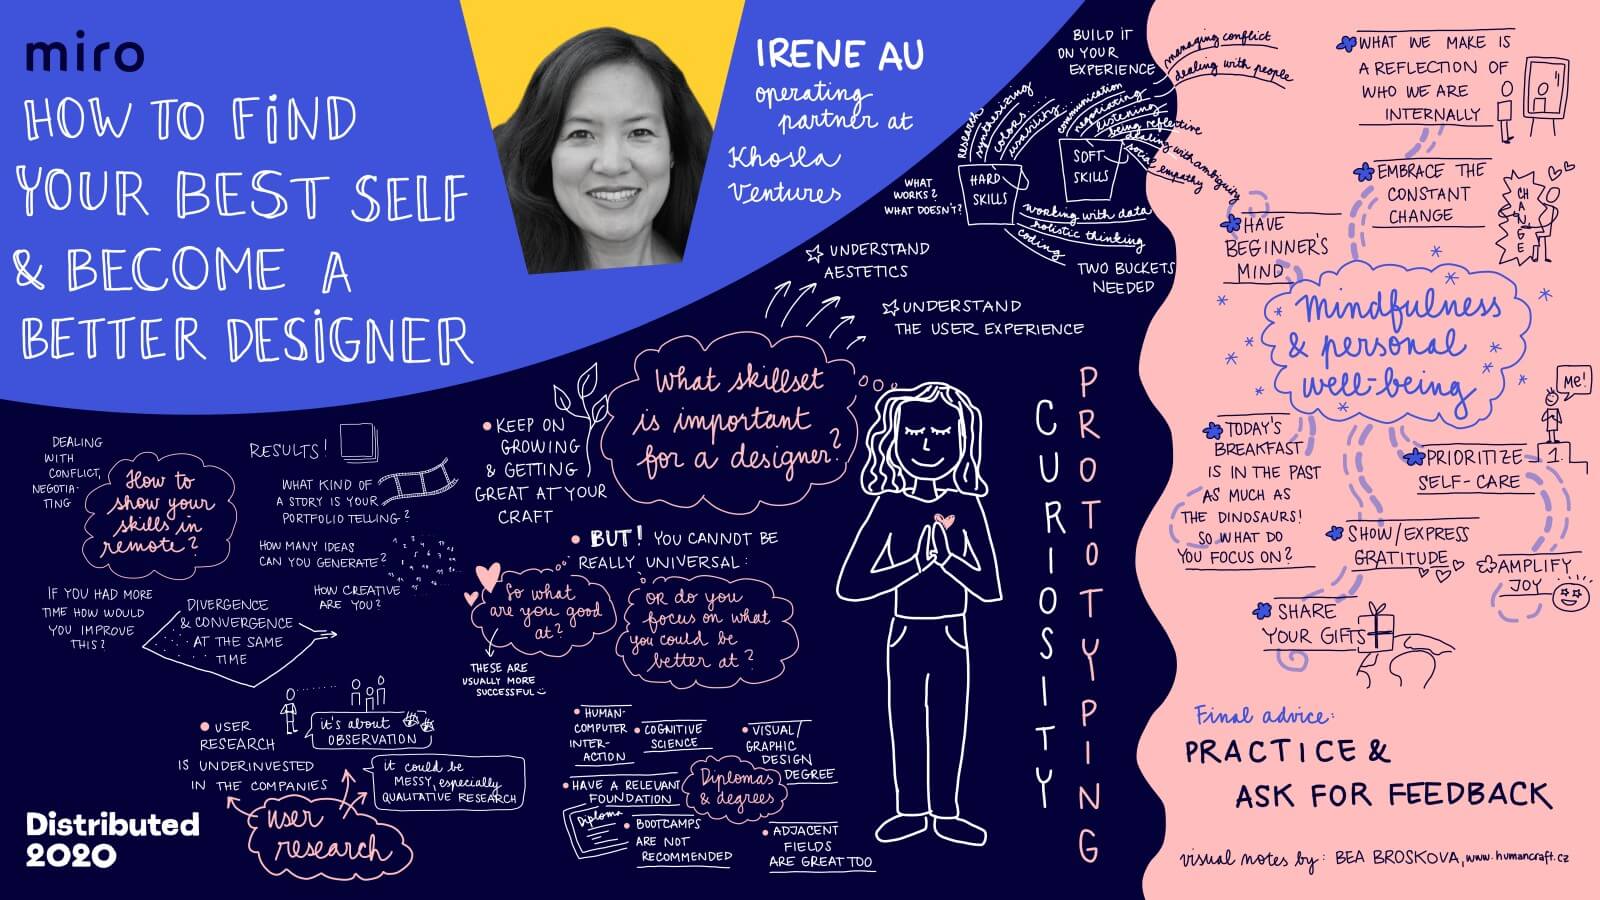 miro
HOW TO FIND
YOUR BEST SELF
& BECOME A
BETTER DESIGNER
IRENE AU
operating
partner at
Khosla
Ventures
BUILD IT
ON YOUR
EXPERIENCE
managing conflict
dealing with people
communication
negotiating
listening
being reflective
dealing with ambiguity
social empathy
research
synthesizing
colors
usability
HARD
SKILLS
SOFT
SKILLS
WHAT
WORKS?
WHAT DOESN'T?
working with data
holistic thinking
coding
TWO BUCKETS
NEEDED
UNDERSTAND
AESTETICS
UNDERSTAND
THE USER EXPERIENCE
What skillset
is important
for a designer?
KEEP ON
GROWING
& GETTING
GREAT AT YOUR
CRAFT
BUT! YOU CANNOT BE
REALLY UNIVERSAL:
So what
are you good
at?
OR do you
focus on what
you could be
better at?
THESE ARE
USUALLY MORE
SUCCESSFUL
CURIOSITY
PROTOTYPING
DEALING
WITH
CONFLICT,
NEGOTIA-
TING
How to
show your
skills in
remote?
RESULTS!
WHAT KIND OF
A STORY IS YOUR
PORTFOLIO TELLING?
HOW MANY IDEAS
CAN YOU GENERATE?
HOW CREATIVE
ARE YOU?
IF YOU HAD MORE
TIME HOW WOULD
YOU IMPROVE
THIS?
DIVERGENCE
& CONVERGENCE
AT THE SAME
TIME
USER
RESEARCH
IS UNDERINVESTED
IN THE COMPANIES
it's about
OBSERVATION
it could be
MESSY, especially
QUALITATIVE RESEARCH
user
research
HUMAN-
COMPUTER
INTER-
ACTION
COGNITIVE
SCIENCE
VISUAL/
GRAPHIC
DESIGN
DEGREE
HAVE A RELEVANT
FOUNDATION
Diplomas
& degrees
Diploma
BOOTCAMPS
ARE NOT
RECOMMENDED
ADJACENT
FIELDS
ARE GREAT TOO
Distributed
2020
WHAT WE MAKE IS
A REFLECTION OF
WHO WE ARE
INTERNALLY
EMBRACE THE
CONSTANT
CHANGE
CHANGE
HAVE
BEGINNER'S
MIND
Mindfulness
& personal
well-being
TODAY'S
BREAKFAST
IS IN THE PAST
AS MUCH AS
THE DINOSAURS!
SO WHAT DO
YOU FOCUS ON?
ME!
1.
PRIORITIZE
SELF-CARE
SHOW/EXPRESS
GRATITUDE
AMPLIFY
JOY
SHARE
YOUR GIFTS
Final advice:
PRACTICE &
ASK FOR FEEDBACK
visual notes by: BEA BROSKOVA, www.humancraft.cz